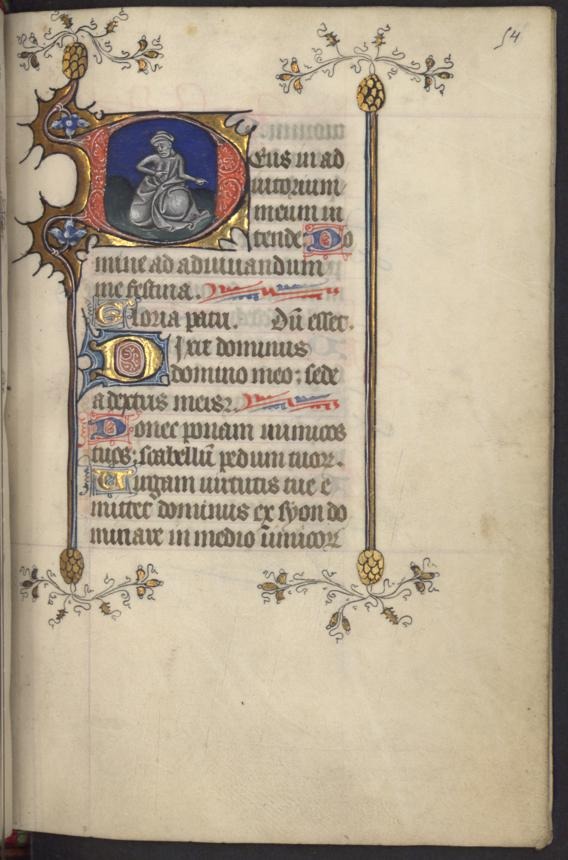 54
Deus in ad
iutorium
meum in
tende Do
mine ad adiuuandum
me festina.
Gloria patri. Dũ esset.
Dixit dominus
domino meo: sede
a dextris meis.
Donec ponam inimicos
tuos: scabellũ pedum tuoꝝ.
Uirgam uirtutis tue e
mittet dominus ex syon do
minare in medio inimicoꝝ